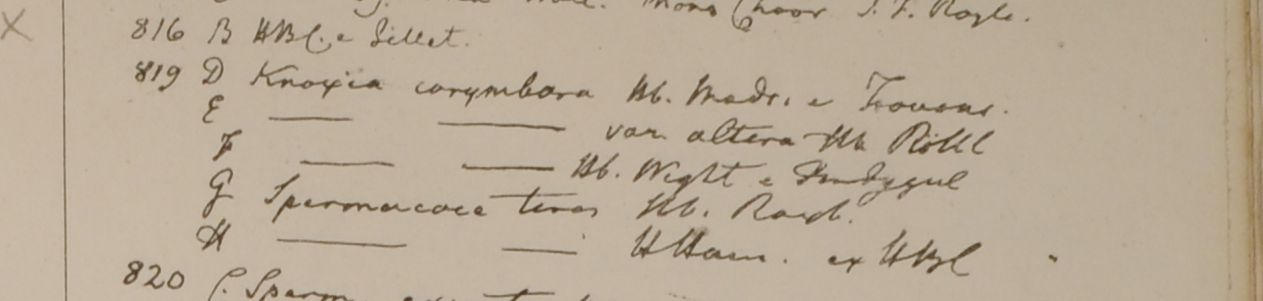 Moor Choor J. F. Royle.
816 B HBC. e Sillet.
819 D Knoxia corymbosa Hb. Madr. e
E — — var. altera Hb Röttl
F — — Hb. Wight e Dindygul
G Spermacoce teres Hb. Roxb.
H — — HHam. ex HBC
820 C. Sperm